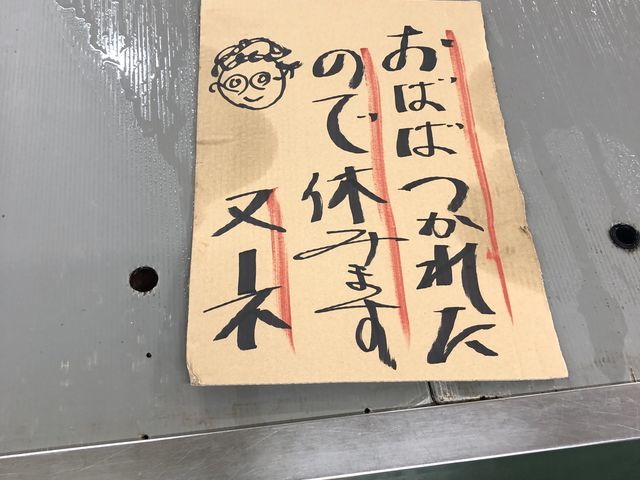 おばばつかれた
ので休みます
又ーネ